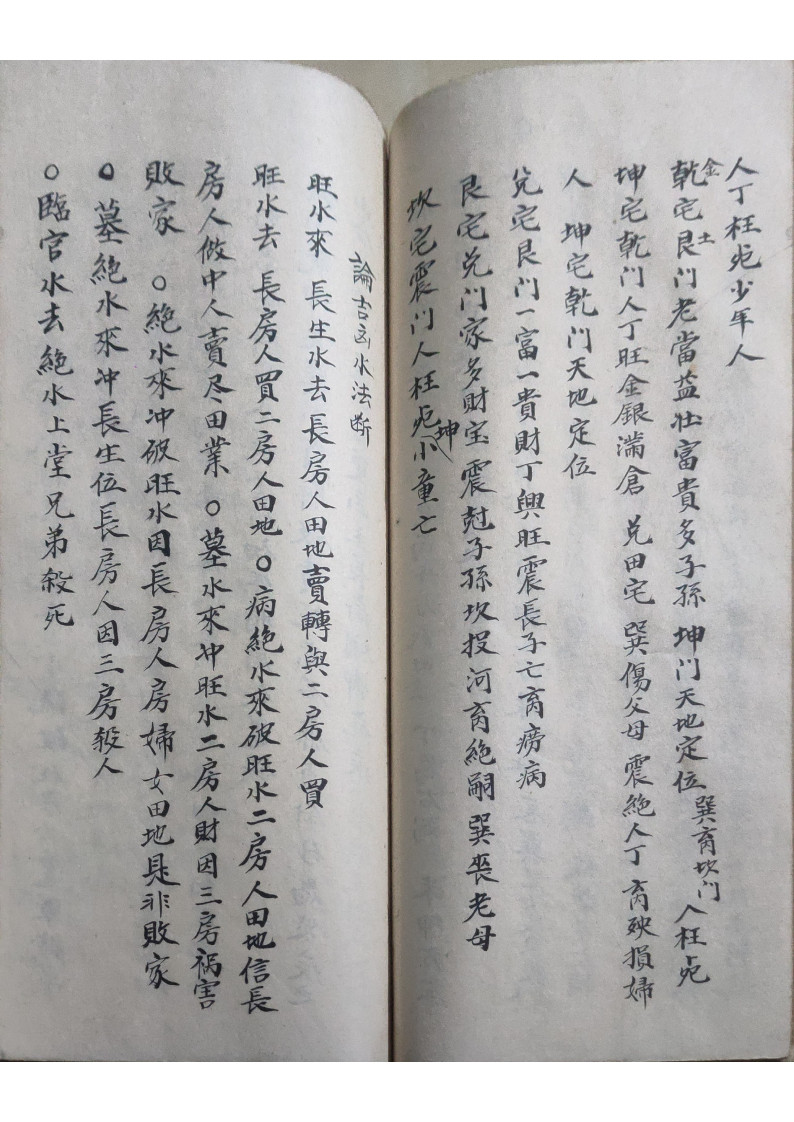 人丁枉死少年人
乾金宅艮土门老當益壮富貴多子孫 坤门天地定位 巽离坎门 人枉死
坤宅乾门人丁旺金銀滿倉 兑田宅 巽傷父母 震絶人丁 离殃損婦
人 坤宅乾门天地定位
兑宅艮门一富一貴財丁興旺震長子亡离痨病
艮宅兑门家多財宝 震尅子孫坎投河离絶嗣 巽丧老母
坎宅震门人枉死坤小童亡
論吉凶水法断
旺水來 長生水去 長房人田地賣轉與二房人買
旺水去 長房人買二房人田地 〇病絶水來破旺水二房人田地信長
房人做中人賣尽田業 〇墓水來冲旺水二房人財因三房禍害
敗家 〇絶水來冲破旺水因長房人房婦女田地是非敗家
〇墓絶水來冲長生位長房人因三房殺人
〇臨官水去絶水上堂兄弟殺死